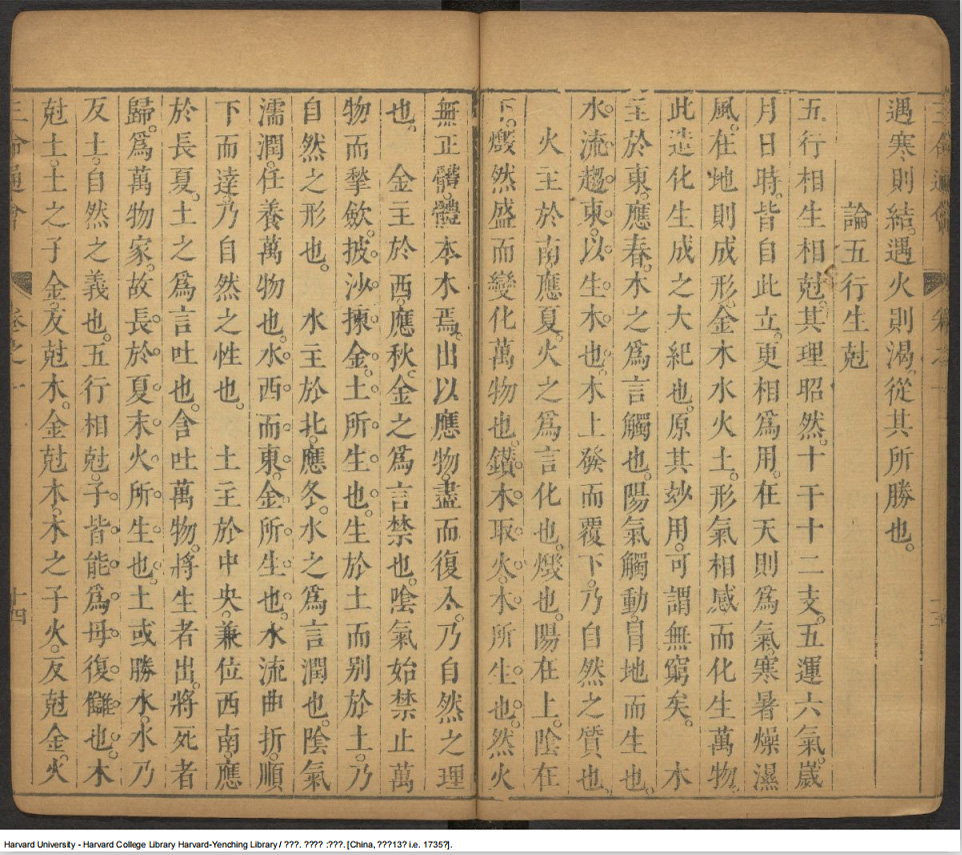 遇寒則結遇火則渴從其所勝也
論五行生尅
五行相生相尅其理昭然十干十二支五運六氣嵗
月日時皆自此立更相爲用在天則爲氣寒暑燥濕
風在地則成形金木水火土形氣相感而化生萬物
此造化生成之大紀也原其妙用可謂無窮矣 木
主於東應春木之爲言觸也陽氣觸動冒地而生也
水流趨東以生木也木上發而覆下乃自然之質也
火主於南應夏火之爲言化也燬也陽在上陰在
下燬然盛而變化萬物也鑚木取火木所生也然火
無正體體本木焉出以應物盡而復入乃自然之理
也 金主於西應秋金之爲言禁也陰氣始禁止萬
物而揫歛披沙揀金土所生也生於土而别於土乃
自然之形也 水主於北應冬水之爲言潤也陰氣
濡潤任養萬物也水西而東金所生也水流曲折順
下而達乃自然之性也 土主於中央兼位西南應
於長夏土之爲言吐也含吐萬物將生者出將死者
歸爲萬物家故長於夏末火所生也土或勝水水乃
反土自然之義也五行相尅子皆能爲母復讎也木
尅土土之子金反尅木金尅木木之子火反尅金火
三命通會 卷之一 十四
Harvard University - Harvard College Library Harvard-Yenching Library / ???. ???? :???. [China, ???13? i.e. 1735?].